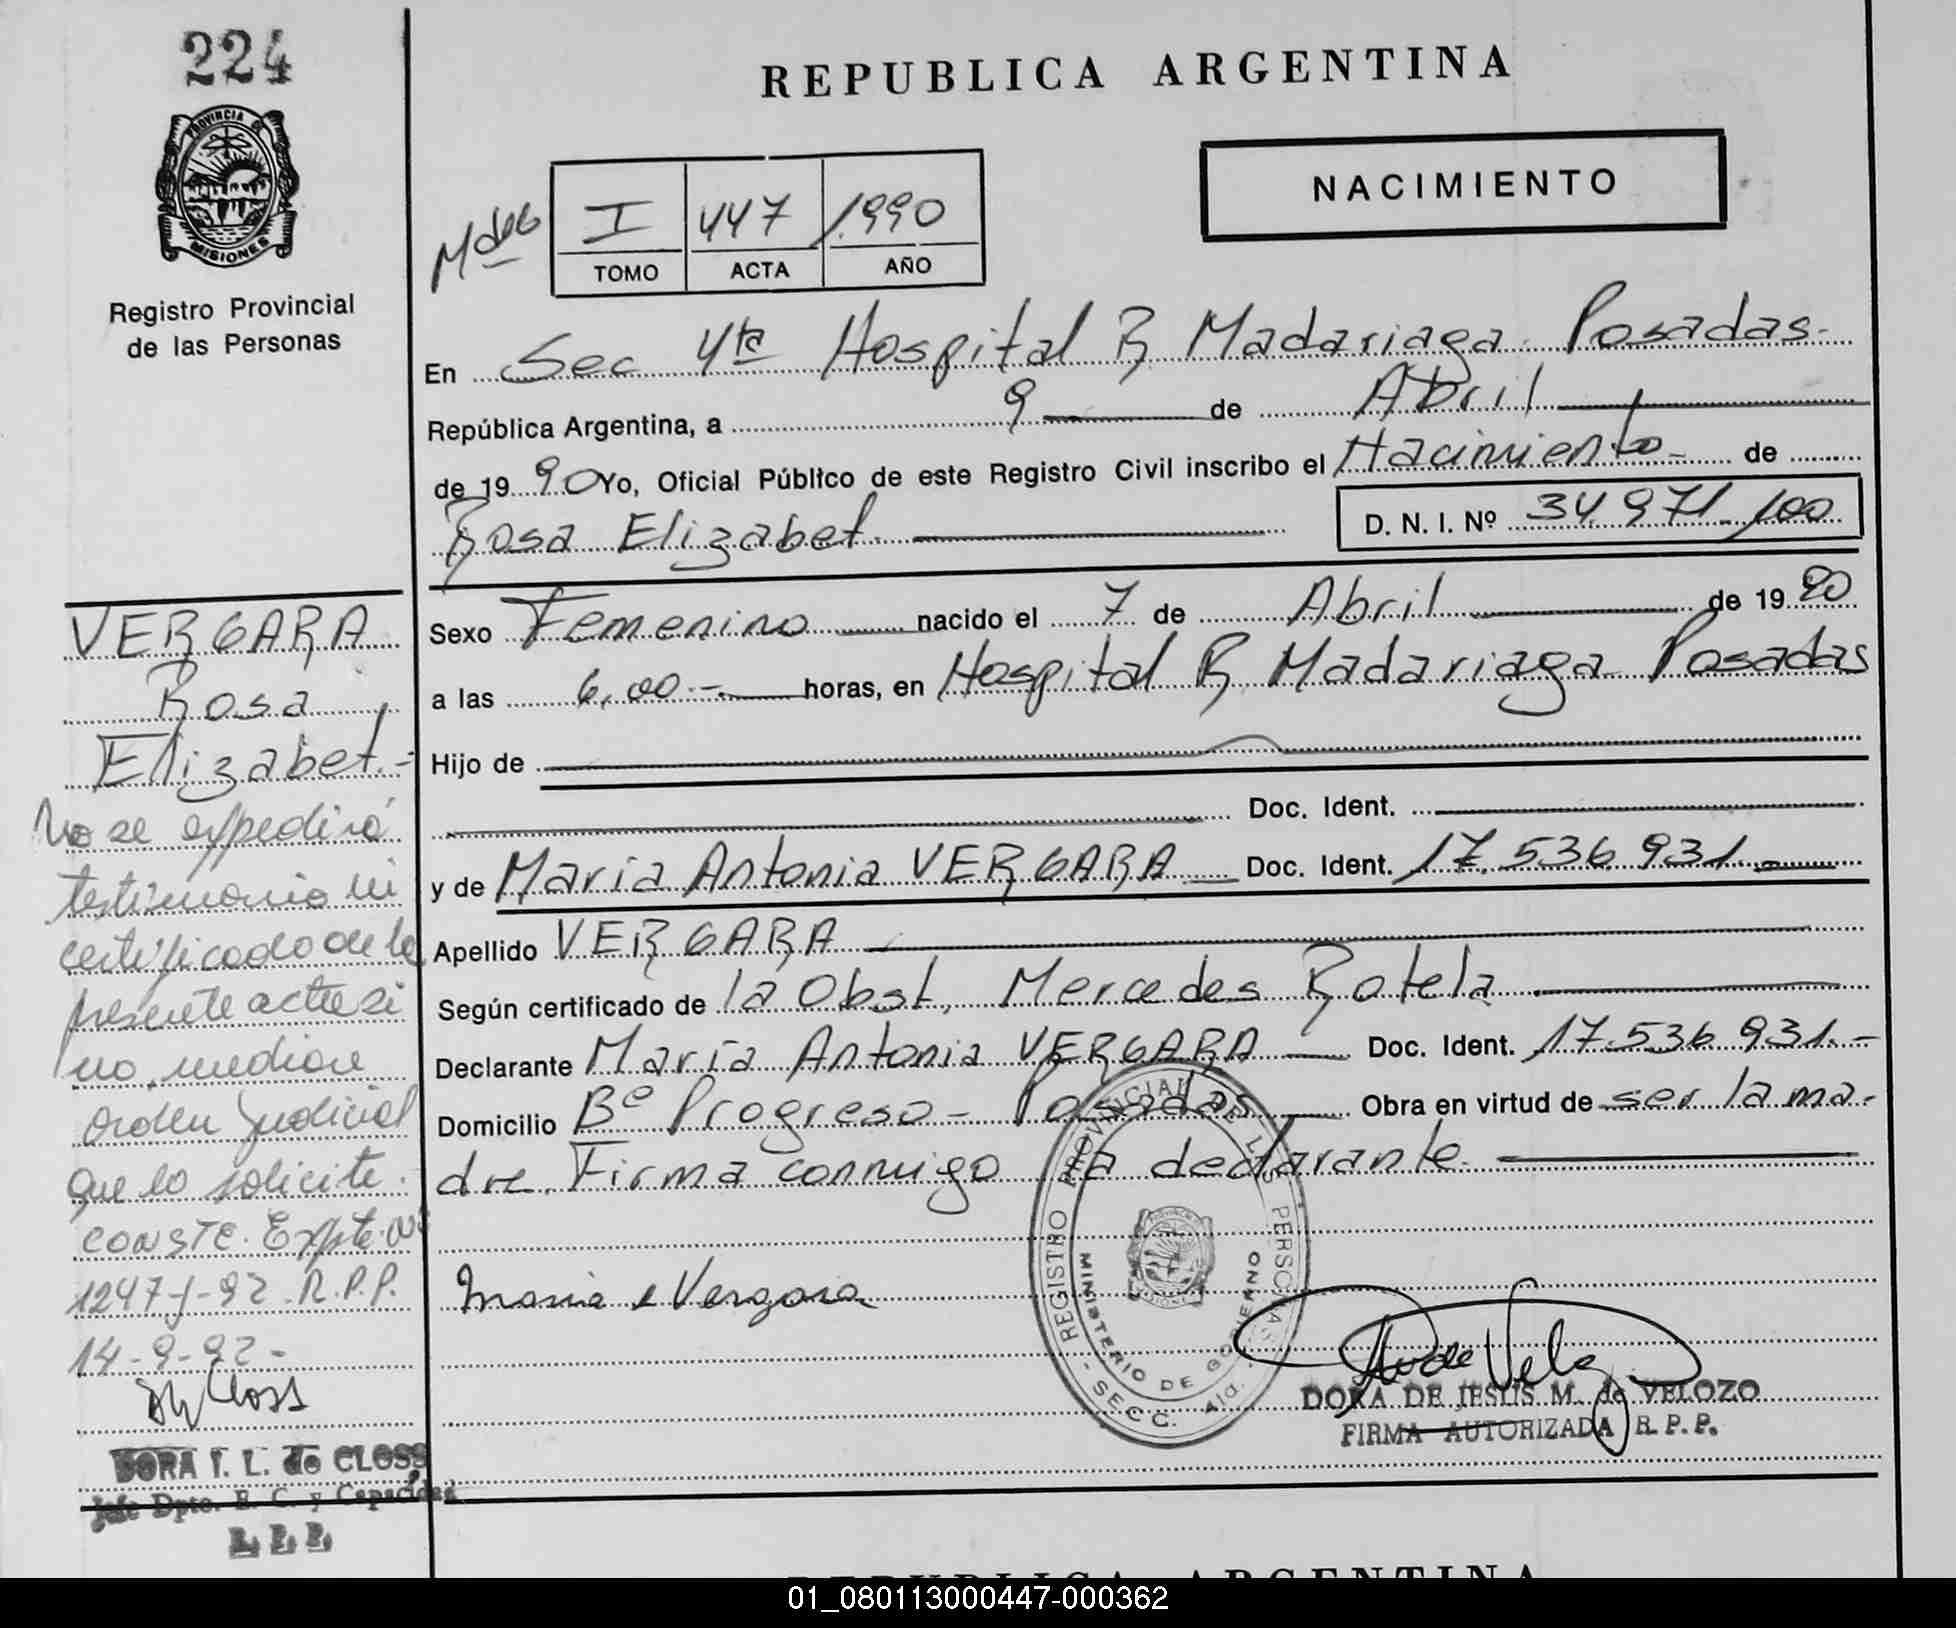 224
PROVINCIA DE
MISIONES
Registro Provincial
de las Personas
REPUBLICA ARGENTINA
NACIMIENTO
I 447 1990
TOMO ACTA AÑO
En Sec 4ta Hospital R Madariaga Posadas.-
República Argentina, a 9 de Abril
de 1990 Yo, Oficial Público de este Registro Civil inscribo el Nacimiento de
Rosa Elizabet.
D. N. I. Nº 34.971.100
Sexo Femenino nacido el 7 de Abril de 1990
a las 6,00.- horas, en Hospital R. Madariaga Posadas
Hijo de
Doc. Ident.
y de María Antonia VERGARA Doc. Ident. 17.536.931.-
Apellido VERGARA
Según certificado de la Obst, Mercedes Rotela
Declarante María Antonia VERGARA Doc. Ident. 17.536.931.-
Domicilio Bº Progreso - Posadas Obra en virtud de ser la ma-
dre. Firma conmigo la declarante.
Maria A Vergara
REGISTRO PROVINCIAL DE LAS PERSONAS
MINISTERIO DE GOBIERNO
SECC. 4ta.
DORA DE JESUS M. de VELOZO
FIRMA AUTORIZADA R. P. P.
VERGARA
Rosa
Elizabet.-
No se expedirá
testimonio ni
certificado de la
presente acta si
no mediare
orden judicial
que lo solicite.
CONSTE. Expte. nº
1247-J-92 R.P.P.
14-9-92-
DORA T. L. de CLOSS
Jefe Dpto. E. C. y Capacidad
R. P. P.
REPUBLICA ARGENTINA
01_080113000447-000362